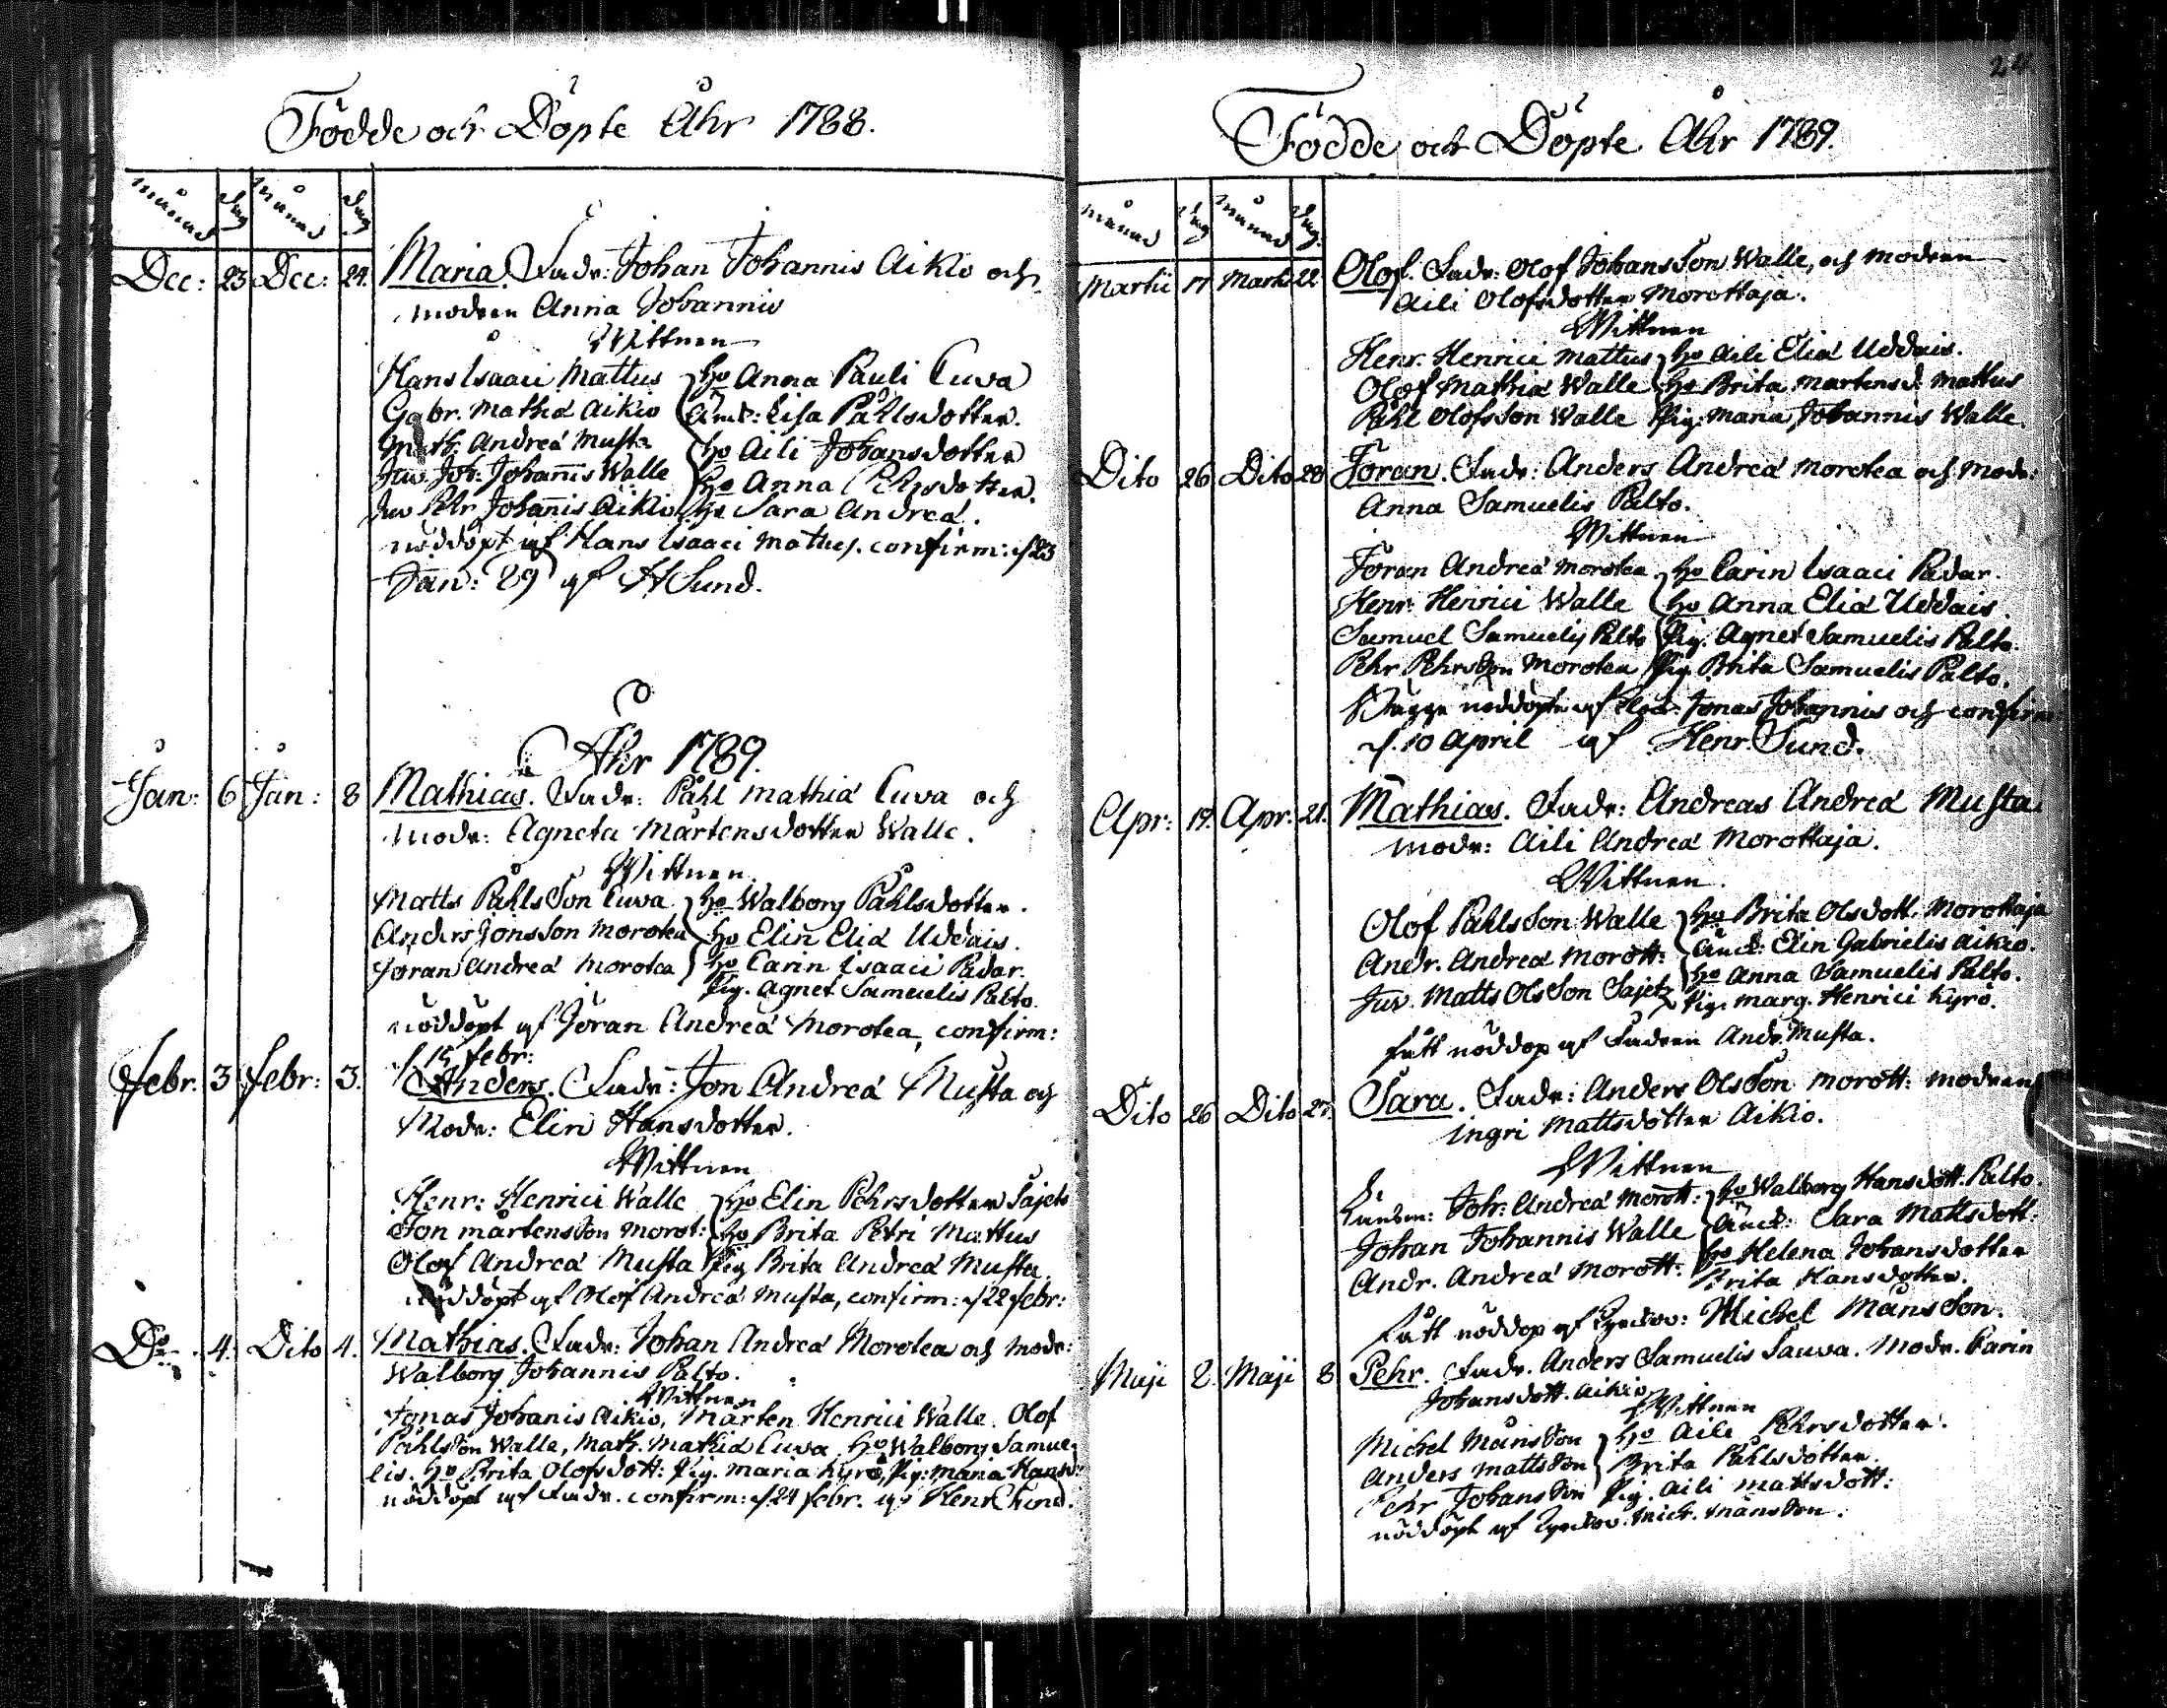 Födde och Döpte Åhr 1788.
månad dag månad dag
Dec: 23 Dec: 24. Maria. Fadr: Johan Johannis Aikio och
modren Anna Johannis
Wittnen
Hans Isaaci Mattus ho Anna Pauli Cuva
Gabr. Mathiæ Aikio Änk: Lisa Påhlsdotter.
Math. Andreæ Musta ho Aili Johansdotter
Juv. Joh: Johannis Walle ho Anna Pehrsdotter.
Juv Pehr Johannis Aikio ho Sara Andreæ.
nöddöpt af Hans Isaaci Mattus. confirm: d 23
Jan: 89 af H Sund.
Åhr 1789.
Jan: 6 Jan: 8 Mathias. Fadr: Påhl Mathiæ Cuva och
modr: Agneta Mårtensdotter Walle.
Wittnen.
Matts Påhlsson Cuva ho Walborg Påhlsdotter.
Anders Jonsson Morotea ho Elin Eliæ Uddais.
Jöran Andreæ Morotea ho Carin Isaaci Padar.
Pig. Agnet Samuelis Palto.
nöddöpt af Jöran Andreæ Morotea, confirm:
d 15 febr:
Febr. 3 Febr: 3. Anders. Fadr: Jon Andreæ Musta och
Modr: Elin Hansdotter.
Wittnen
Henr: Henrici Walle ho Elin Pehrsdotter Sajets
Jon Mårtensson Morot: ho Brita Petri Mattus
Olof Andreæ Musta Pig Brita Andreæ Musta.
nöddöpt af Olof Andreæ Musta, confirm: d 22 febr:
Do. 4. Dito 4. Mathias. Fadr: Johan Andreæ Morotea och modr:
Walborg Johannis Palto.
Wittnen
Jonas Johanis Aikio, Mårten Henrici Walle. Olof
Påhlsson Walle, Math. Mathiæ Cuva. ho Walborg Samue-
lis. ho Brita Olofsdott: Pig. Maria Kyrö, Pig: Maria Hansd:
nöddöpt af Fadr. confirm: d 24 febr. af Henr Sund.
24.
Födde och Döpte Åhr 1789.
månad dag månad dag.
Martii 17 Martii 22 Olof. Fadr: Olof Johansson Walle, och modren
Aili Olofsdotter Morottaja.
Wittnen
Henr. Henrici Mattus ho Aili Eliæ Uddais.
Olof Mathiæ Walle ho Brita Martensd. Mattus
Påhl Olofsson Walle Pig. Maria Johannis Walle.
Dito 26 Dito 28 Jöran. Fadr: Anders Andreæ Morotea och modr:
Anna Samuelis Palto.
Wittnen
Jöran Andreæ Morotea ho Carin Isaaci Padar.
Henr. Henrici Walle ho Anna Eliæ Uddais.
Samuel Samuelis Palto Pig. Agnet Samuelis Palto.
Pehr Pehrsson Morotea Pig. Brita Samuelis Palto.
Bägge nöddöpte af Jonas Johannis och confirm
d. 10 April af Henr. Sund.
Apr: 19. Apr. 21. Mathias. Fadr: Andreas Andreæ Musta
modr: Aili Andreæ Morottaja.
Wittnen.
Olof Påhlsson Walle ho Brita Olsdott. Morottaja
Andr. Andreæ Morott: Änck: Elin Gabrielis Aikio.
Juv. Matts Olsson Sajets ho Anna Samuelis Palto.
Pig. Marg. Henrici Kyrö.
fått nöddop af Fadren Andr. Musta.
Dito 26 Dito 27. Sara. Fadr: Anders Olsson Morott: modren
Ingri Mattsdotter Aikio.
Wittnen
Joh: Andreæ Morott: ho Walborg Hansdott. Palto.
Johan Johannis Walle Änck: Sara Mattsdott:
Andr. Andreæ Morott: ho Helena Johansdotter
Brita Hansdotter.
fått nöddop af Michel Månsson.
Maji 2. Maji 8 Pehr. Fadr. Anders Samuelis Sauva. Modr. Karin
Johansdott. Aikio
Wittnen
Michel Månsson ho Aili Pehrsdotter.
Anders Mattsson Brita Påhlsdotter.
Pehr Johansson Pig. Aili Mattsdott:
nöddöpt af Mich. Månsson.